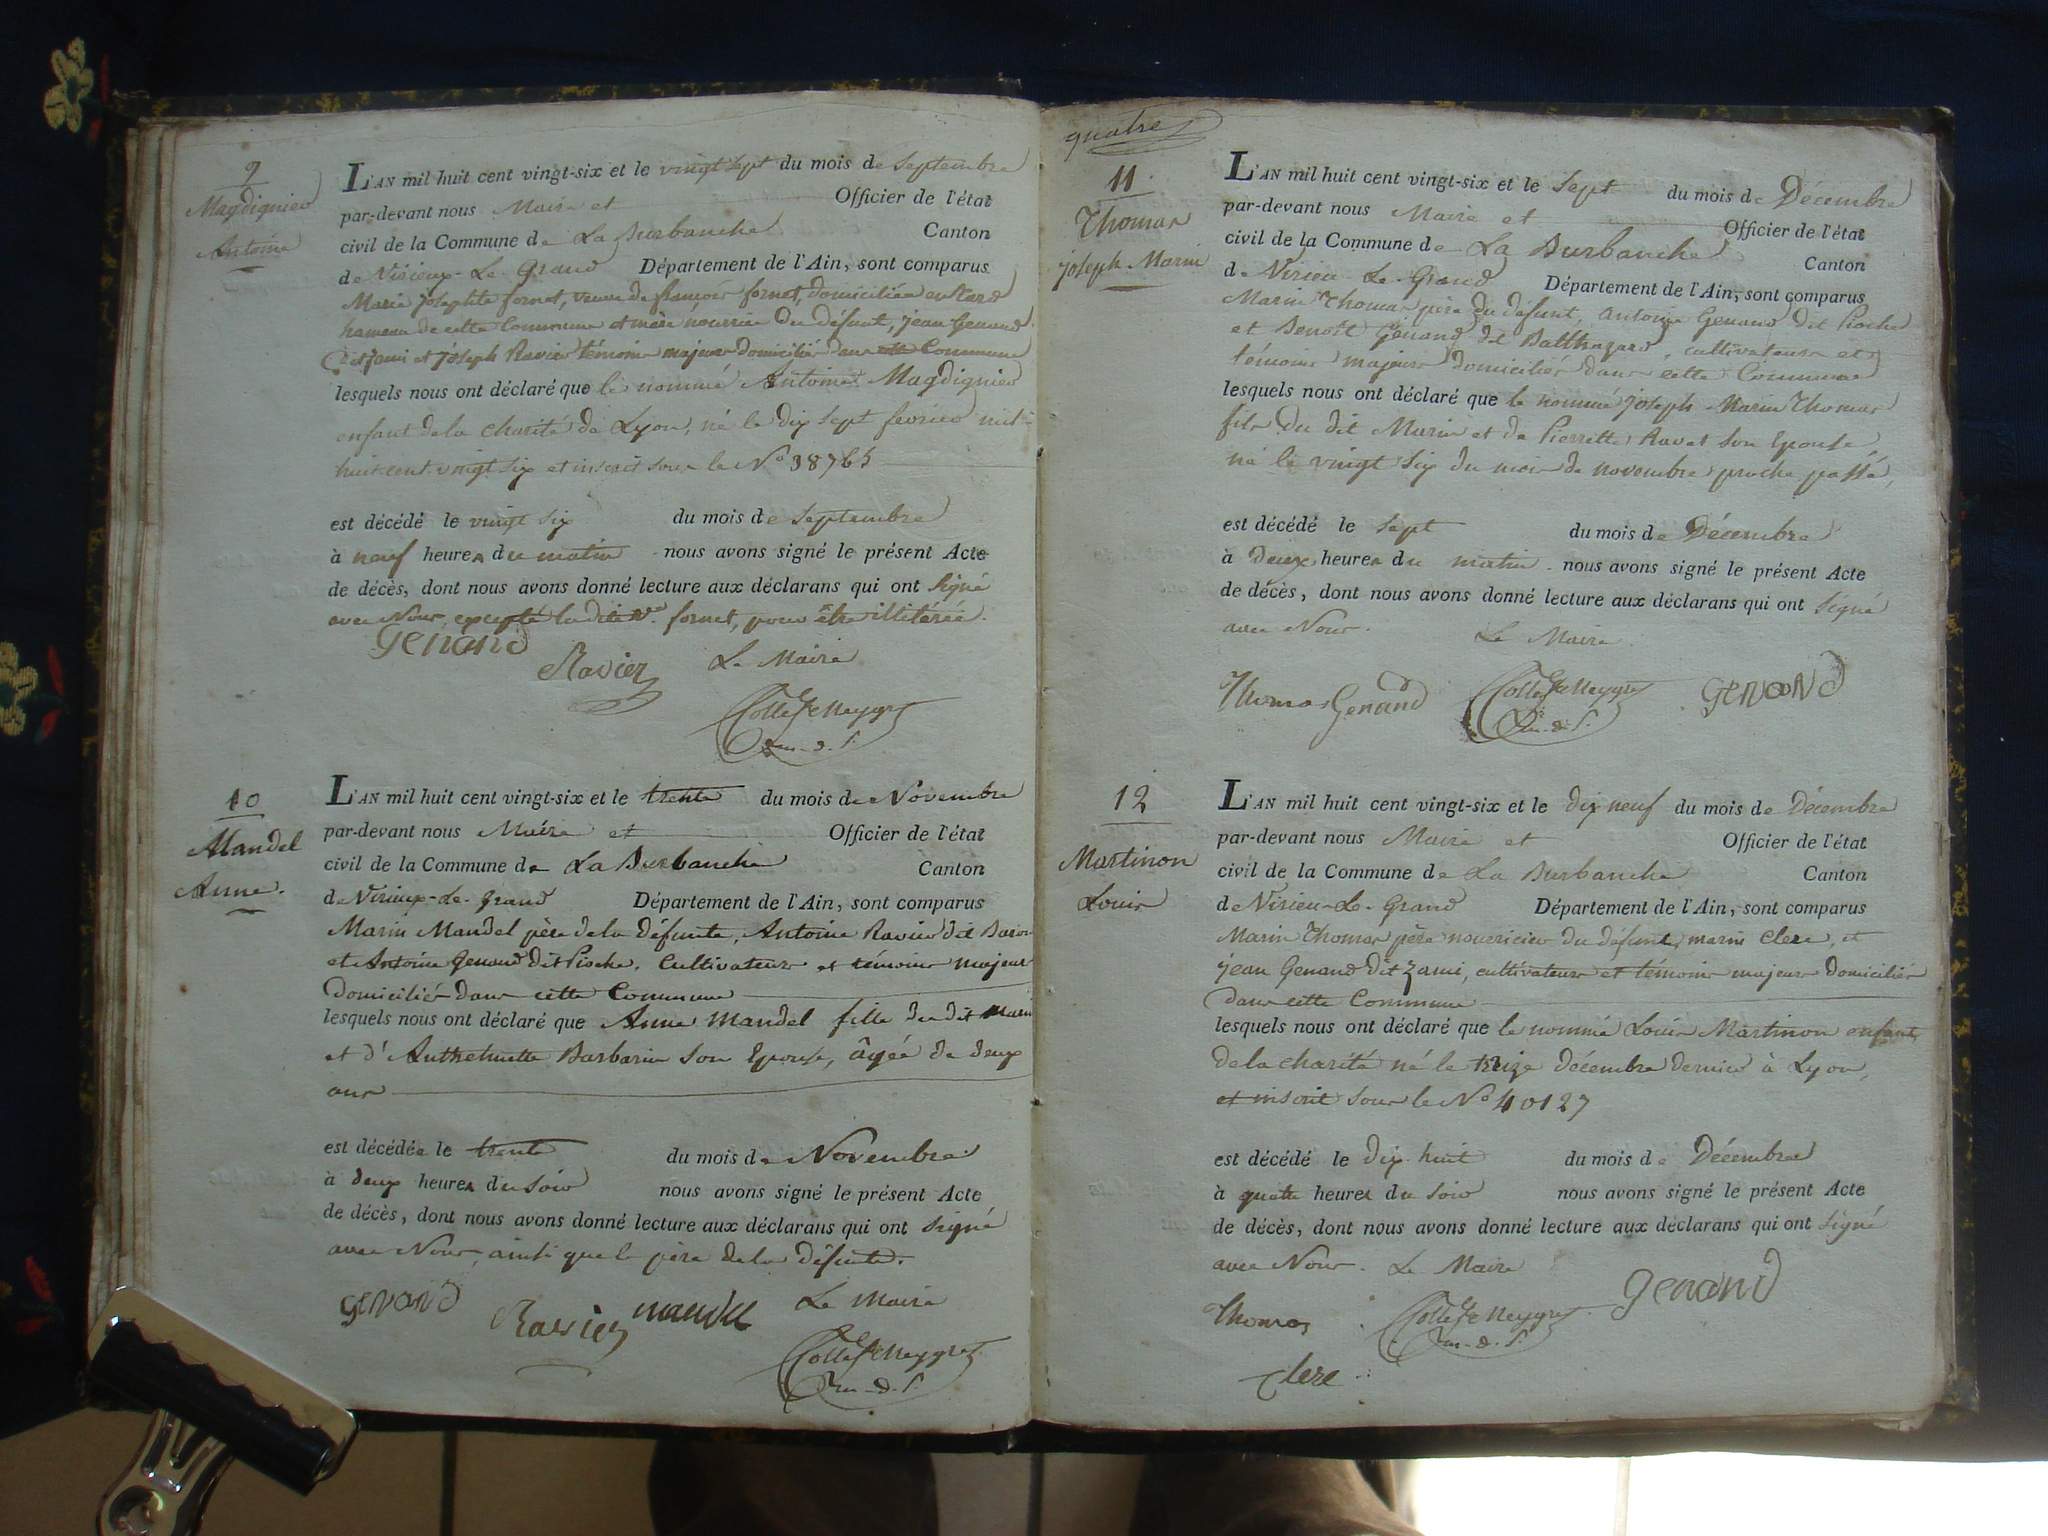 9
Magdignier
Antoine
L'AN mil huit cent vingt-six et le vingt sept du mois de Septembre
par-devant nous Maire et Officier de l'état
civil de la Commune de La Burbanche Canton
de Virieux-Le Grand Département de l'Ain, sont comparus
Marie Josephte fornet, veuve de françois fornet, domiciliée en
hameau de cette Commune et mère nourrice du défunt, jean Genand
dit jami et joseph Ravier témoins majeurs domiciliés dans Commune
lesquels nous ont déclaré que le nommé Antoine Magdignier
enfant de la charité de Lyon, né le dix sept fevrier mil-
huit cent vingt six et inscrit sous le No 38765
est décédé le vingt six du mois de Septembre
à neuf heures du matin nous avons signé le présent Acte
de décès, dont nous avons donné lecture aux déclarans qui ont Signé
avec Nous, excepté la dite Ve. fornet, pour être illitérée.
Genand
Ravier Le Maire
10
Mandel
Anne.
L'AN mil huit cent vingt-six et le trente du mois de Novembre
par-devant nous Maire et Officier de l'état
civil de la Commune de La Burbanche Canton
de Virieux-Le-Grand Département de l'Ain, sont comparus
Marin Mandel père de la défunte, Antoine Ravier dit Baron
et Antoine Genand dit Pioche, Cultivateurs et témoins majeurs
domiciliés dans cette Commune
lesquels nous ont déclaré que Anne Mandel fille du dit Marin
et d'Anthelmette Barbarin son Epouse, âgée de deux
ans
est décédée le trente du mois de Novembre
à deux heures du soir nous avons signé le présent Acte
de décès, dont nous avons donné lecture aux déclarans qui ont signé
avec Nous, ainsi que le père de la défunte.
Genand Ravier Mandel Le Maire
quatre
11
Thomas
joseph Marin
L'AN mil huit cent vingt-six et le Sept du mois de Décembre
par-devant nous Maire et Officier de l'état
civil de la Commune de La Burbanche Canton
de Virieu-Le-Grand Département de l'Ain, sont comparus
Marin Thomas père du défunt, Antoine Genand dit Pioche
et Benoît Genand dit Balthazard, cultivateurs et
témoins majeurs domiciliés dans cette Commune
lesquels nous ont déclaré que le nommé joseph-Marin Thomas
fils du dit Marin et de Pierrette Ravet son Epouse
né le vingt Six du mois de novembre proche passé,
est décédé le Sept du mois de Décembre
à deux heures du matin nous avons signé le présent Acte
de décès, dont nous avons donné lecture aux déclarans qui ont Signé
avec Nous. Le Maire
Thomas Genand Genand
12
Martinon
Louis
L'AN mil huit cent vingt-six et le dix neuf du mois de Décembre
par-devant nous Maire et Officier de l'état
civil de la Commune de La Burbanche Canton
de Virieu-Le-Grand Département de l'Ain, sont comparus
Marin Thomas père nourricier du défunt, marin Clere, et
jean Genand dit Zami, cultivateurs et témoins majeurs domiciliés
dans cette Commune
lesquels nous ont déclaré que le nommé Louis Martinon enfant
de la charité né le treize décembre dernier à Lyon,
et inscrit sous le No 40127
est décédé le dix huit du mois de Décembre
à quatre heures du soir nous avons signé le présent Acte
de décès, dont nous avons donné lecture aux déclarans qui ont signé
avec Nous. Le Maire
Thomas Genand
Clere